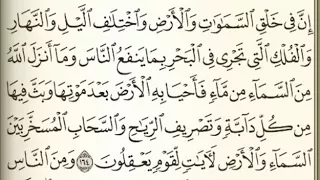 إِنَّ فِى خَلْقِ ٱلسَّمَٰوَٰتِ وَٱلْأَرْضِ وَٱخْتِلَٰفِ ٱلَّيْلِ وَٱلنَّهَارِ
وَٱلْفُلْكِ ٱلَّتِى تَجْرِى فِى ٱلْبَحْرِ بِمَا يَنفَعُ ٱلنَّاسَ وَمَآ أَنزَلَ ٱللَّهُ
مِنَ ٱلسَّمَآءِ مِن مَّآءٍ فَأَحْيَا بِهِ ٱلْأَرْضَ بَعْدَ مَوْتِهَا وَبَثَّ فِيهَا
مِن كُلِّ دَآبَّةٍ وَتَصْرِيفِ ٱلرِّيَٰحِ وَٱلسَّحَابِ ٱلْمُسَخَّرِ بَيْنَ
ٱلسَّمَآءِ وَٱلْأَرْضِ لَءَايَٰتٍ لِّقَوْمٍ يَعْقِلُونَ ١٦٤ وَمِنَ ٱلنَّاسِ